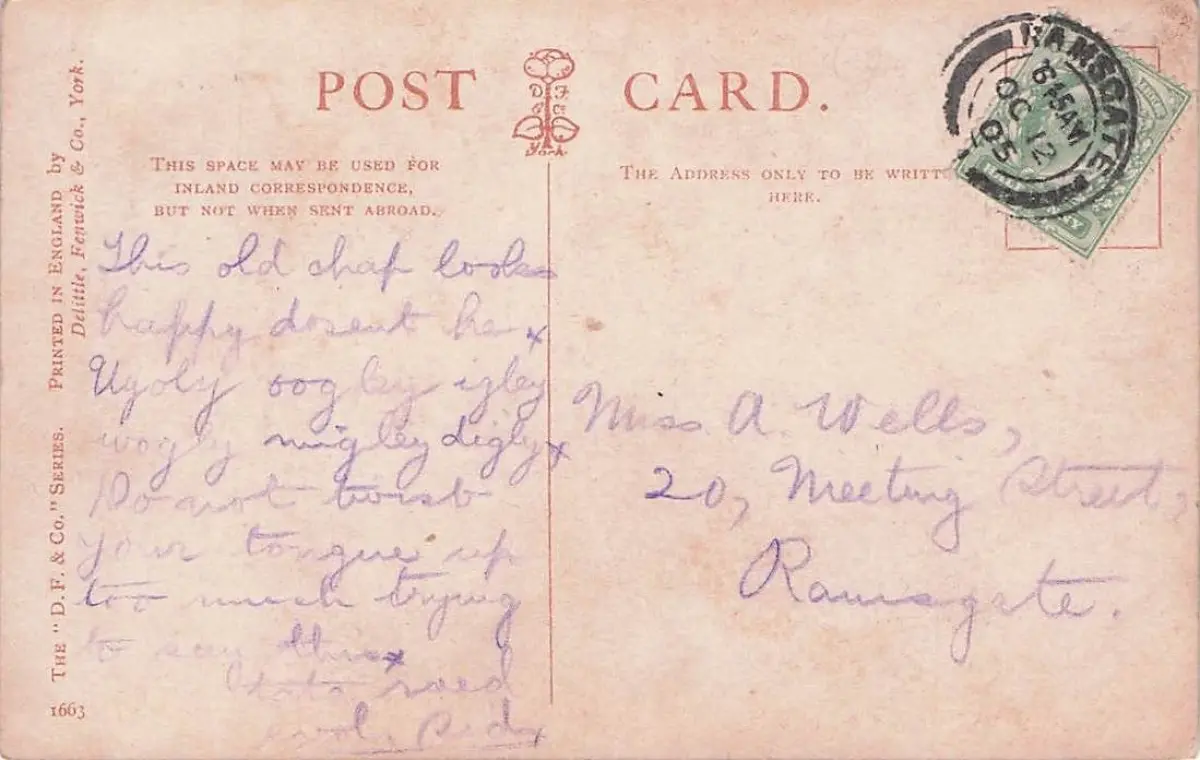 POST CARD.
D F
& Co
York
THIS SPACE MAY BE USED FOR
INLAND CORRESPONDENCE,
BUT NOT WHEN SENT ABROAD.
THE ADDRESS ONLY TO BE WRITT
HERE.
RAMSGATE
6 15 AM
OC 12
05
PRINTED IN ENGLAND by
Delittle, Fenwick & Co., York.
THE "D. F. & Co." SERIES.
1663
This old chap looks
happy dosent he x
Ugoly oogley igley
wogly migley digly x
Do not twist
your tongue up
too much trying
to say this x
Miss A. Wells,
20, Meeting Street,
Ramsgate.